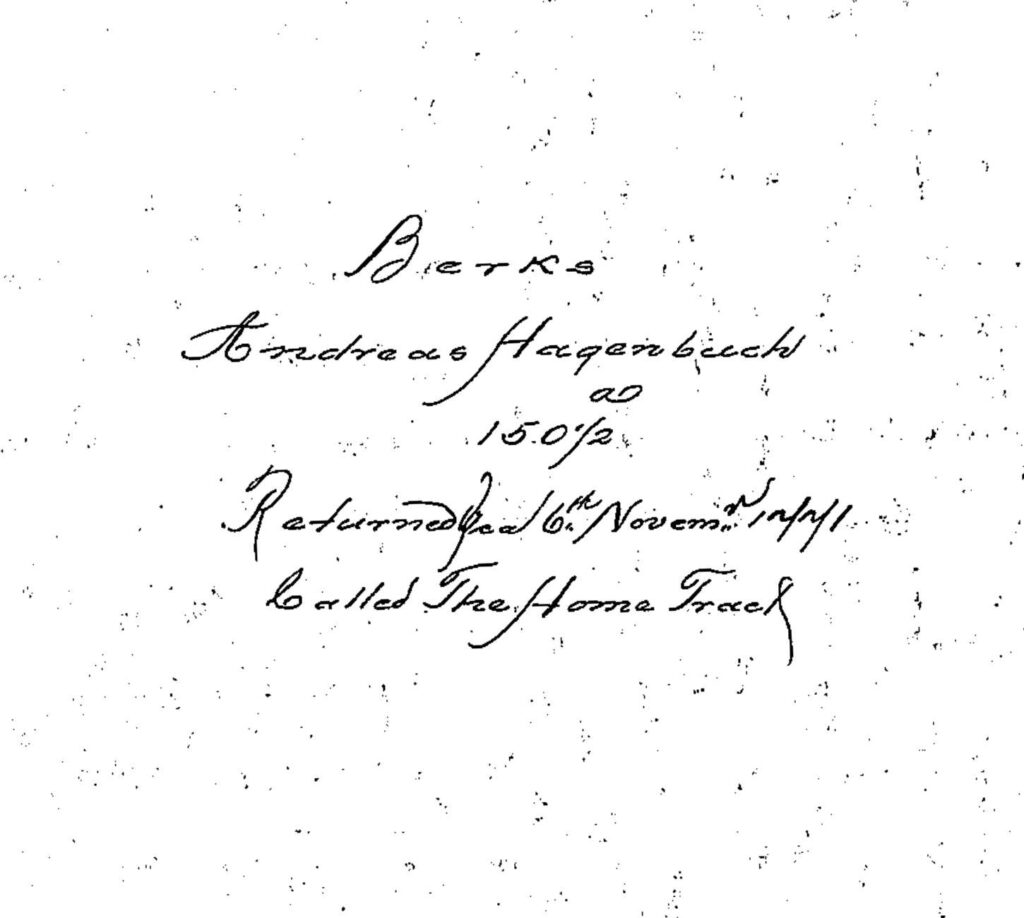 Berks
Andreas Hagenbuch
a
150 1/2
Returned 6th Novem.r 1771
Called The Home Tract